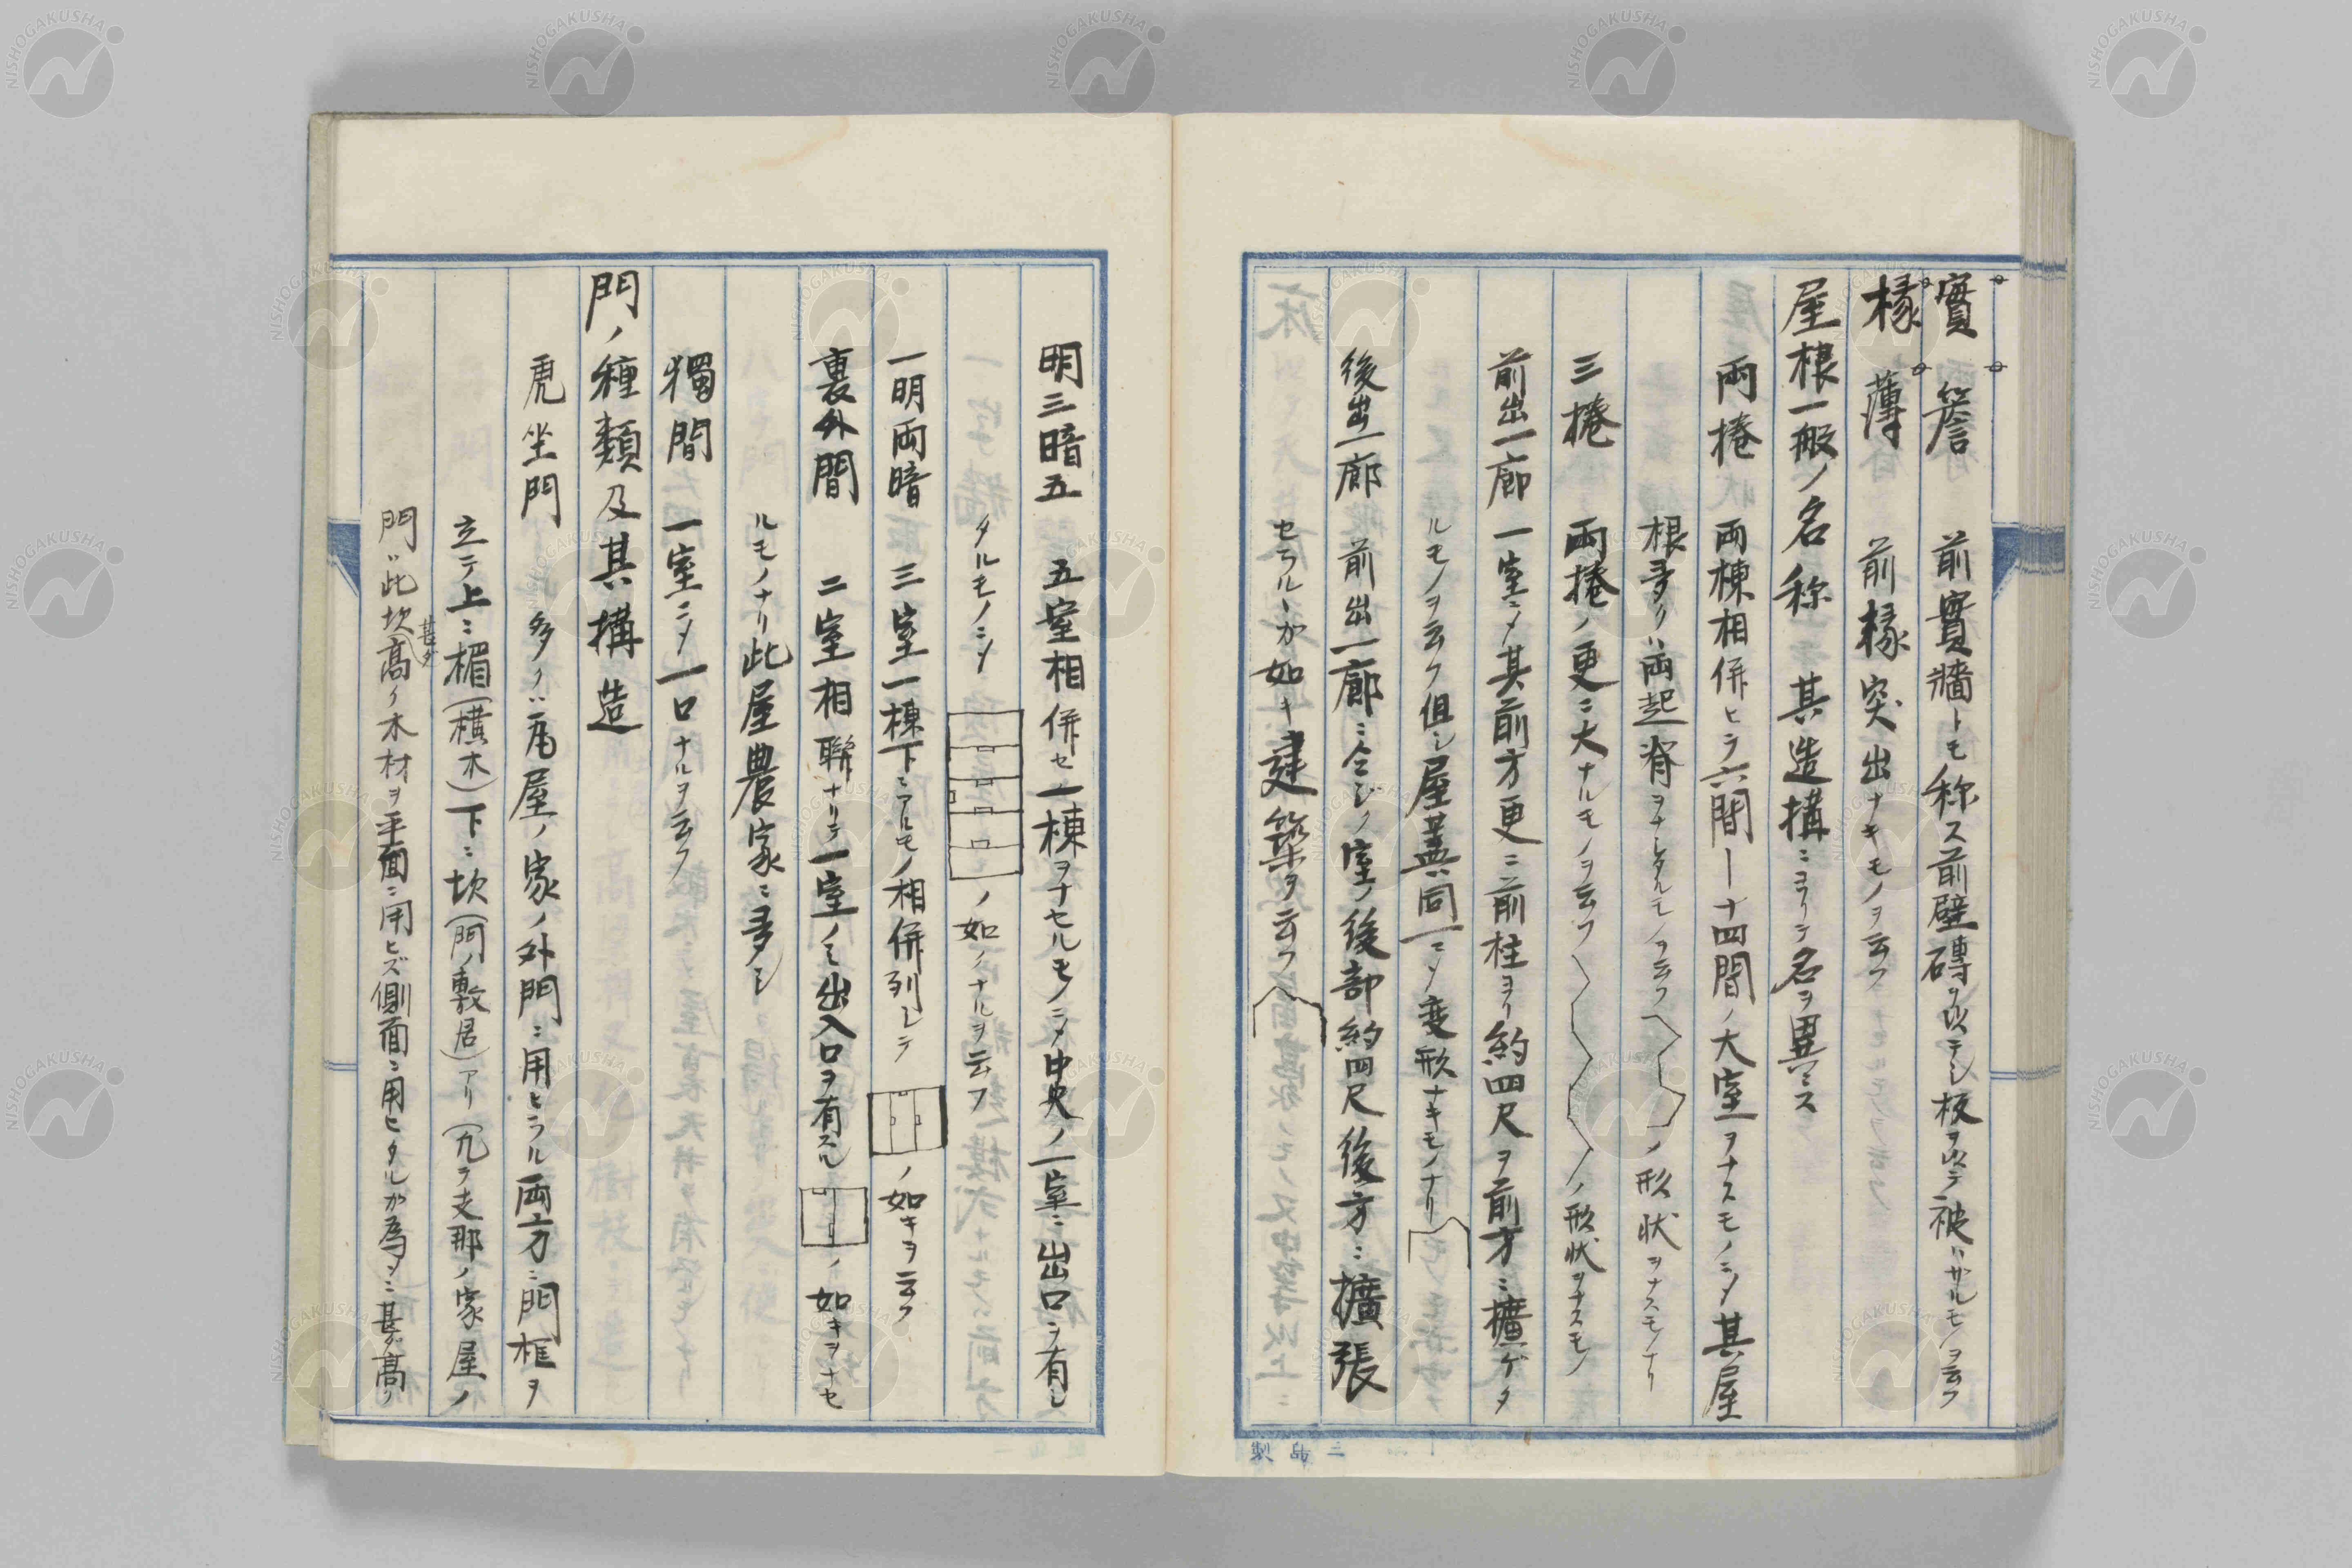 實簷 前實牆トモ称ス前壁磚ヲ以テシ板ヲ以テ被ハザルモノヲ云フ
椽薄 前椽突出ナキモノヲ云フ
屋根一般ノ名称 其造構ニヨリテ名ヲ異ニス
両捲 両棟相併ヒテ六間ー十四間ノ大室ヲナスモノニメ其屋
根多クハ両起脊ヲナシタルモノヲ云フノ形状ヲナスモノナリ
三捲 両捲ノ更ニ大ナルモノヲ云フノ形状ヲナスモノ
前出一廊 一室ニメ其前方更ニ前柱ヨリ約四尺ヲ前方ニ擴ゲタ
ルモノヲ云フ但シ屋蓋同一ニメ変形ナキモノナリ
後出一廊 前出一廊ニ全ジク室ノ後部約四尺後方ニ擴張
セラルヽガ如キ建築ヲ云フ
製品二
明三暗五 五室相併セ一棟ヲナセルモノニメ中央ノ一室ニ出口ヲ有シ
タルモノニシノ如クナルヲ云フ
一明両暗 三室一棟下ニアルモノ相併列シテノ如キヲ云フ
裏外間 二室相聯ナリテ一室ノミ出入口ヲ有スルノ如キヲナセ
ルモノナリ此屋農家ニ多シ
獨間 一室ニメ一口ナルヲ云フ
門ノ種類及其構造
虎坐門 多クハ瓦屋ノ家ノ外門ニ用ヒラル両方ニ門框ヲ
立テ上ニ楣(横木)下ニ坎(門ノ敷居)アリ(凡テ支那ノ家屋ノ
門ハ此坎甚ダ高ク木材ヲ平面ニ用ヒズ側面ニ用ヒタルガ為メニ甚ダ高ク
NISHOGAKUSHA